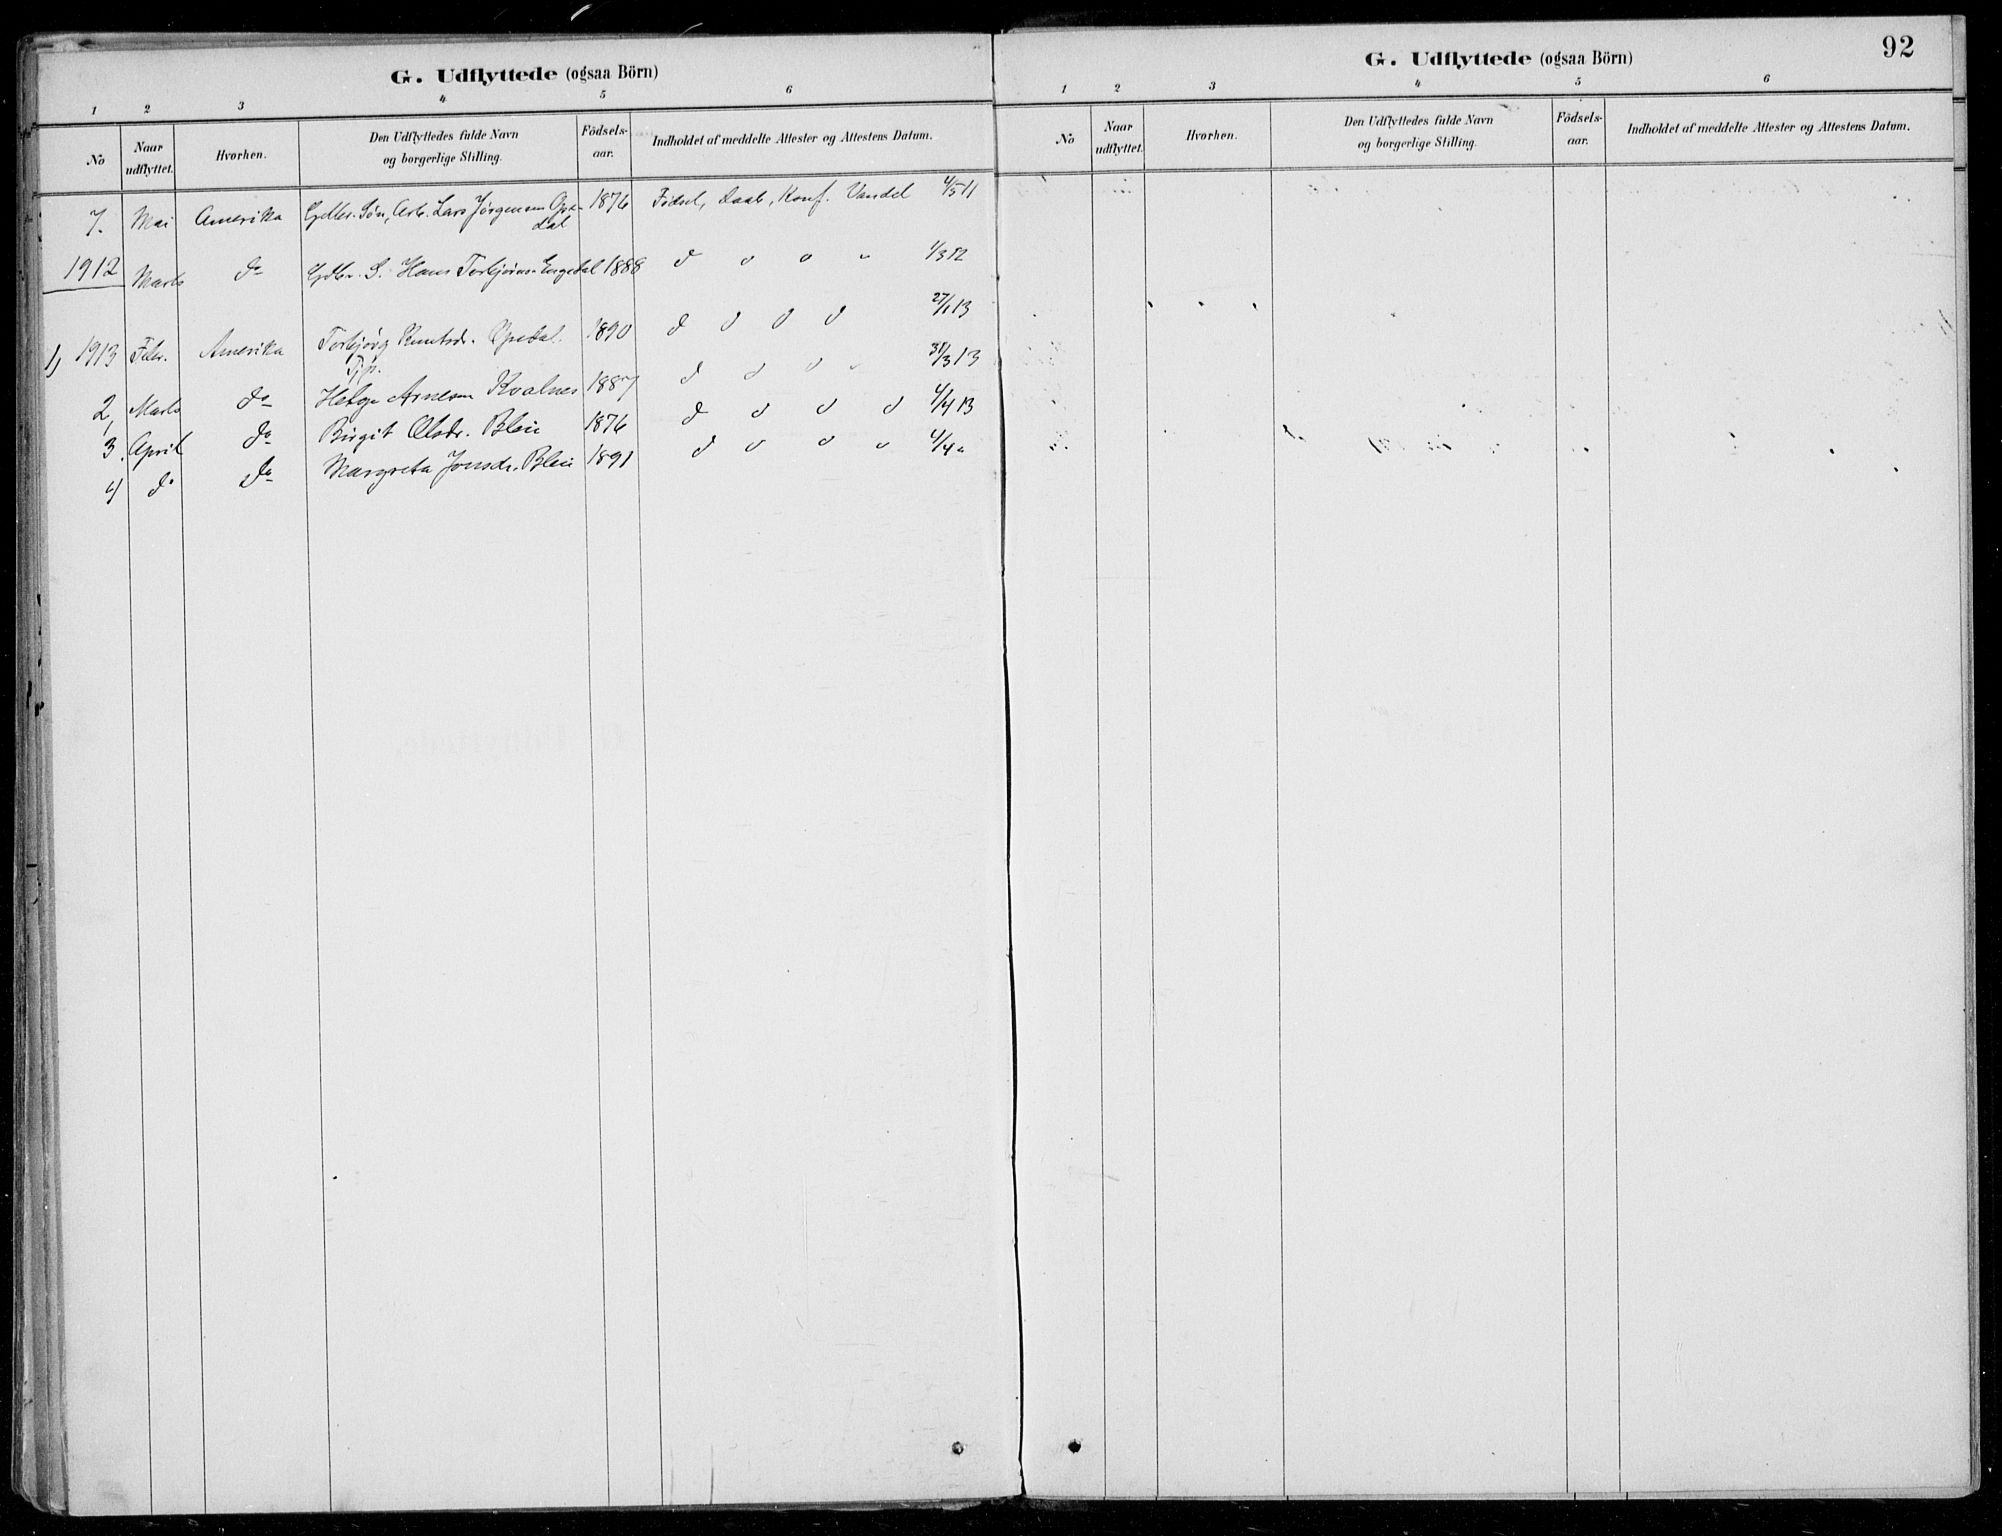 G. Udflyttede (ogsaa Börn)
1 2 3 4 5 6
No Naar udflyttet. Hvorhen. Den Udflyttedes fulde Navn og borgerlige Stilling. Födsels-aar. Indholdet af meddelte Attester og Attestens Datum.
7. Mai Amerika Gdbr. Søn, Arb. Lars Jørgensen Ope- 1876 Fødsel, Daab, Konf. Vandel 4/5 11
dal
1912 Marts do Gdbr. S. Hans Torbjørns. Engedal 1888 d o o " 1/3 12
1) 1913 Febr. Amerika Torbjørg Knutsdr. Opedal. 1890 d o o o 27/1 13
Tjp.
2, Marts do Helge Arnesen Kvalnes 1887 d o o " 31/3 13
3. April do Birgit Olsdr. Bleie 1876 d o o o 4/4 13
4) do do Margreta Jonsdr. Bleie 1891 d o o o 4/4 "
92
G. Udflyttede (ogsaa Börn)
1 2 3 4 5 6
No Naar udflyttet. Hvorhen. Den Udflyttedes fulde Navn og borgerlige Stilling. Födsels-aar. Indholdet af meddelte Attester og Attestens Datum.